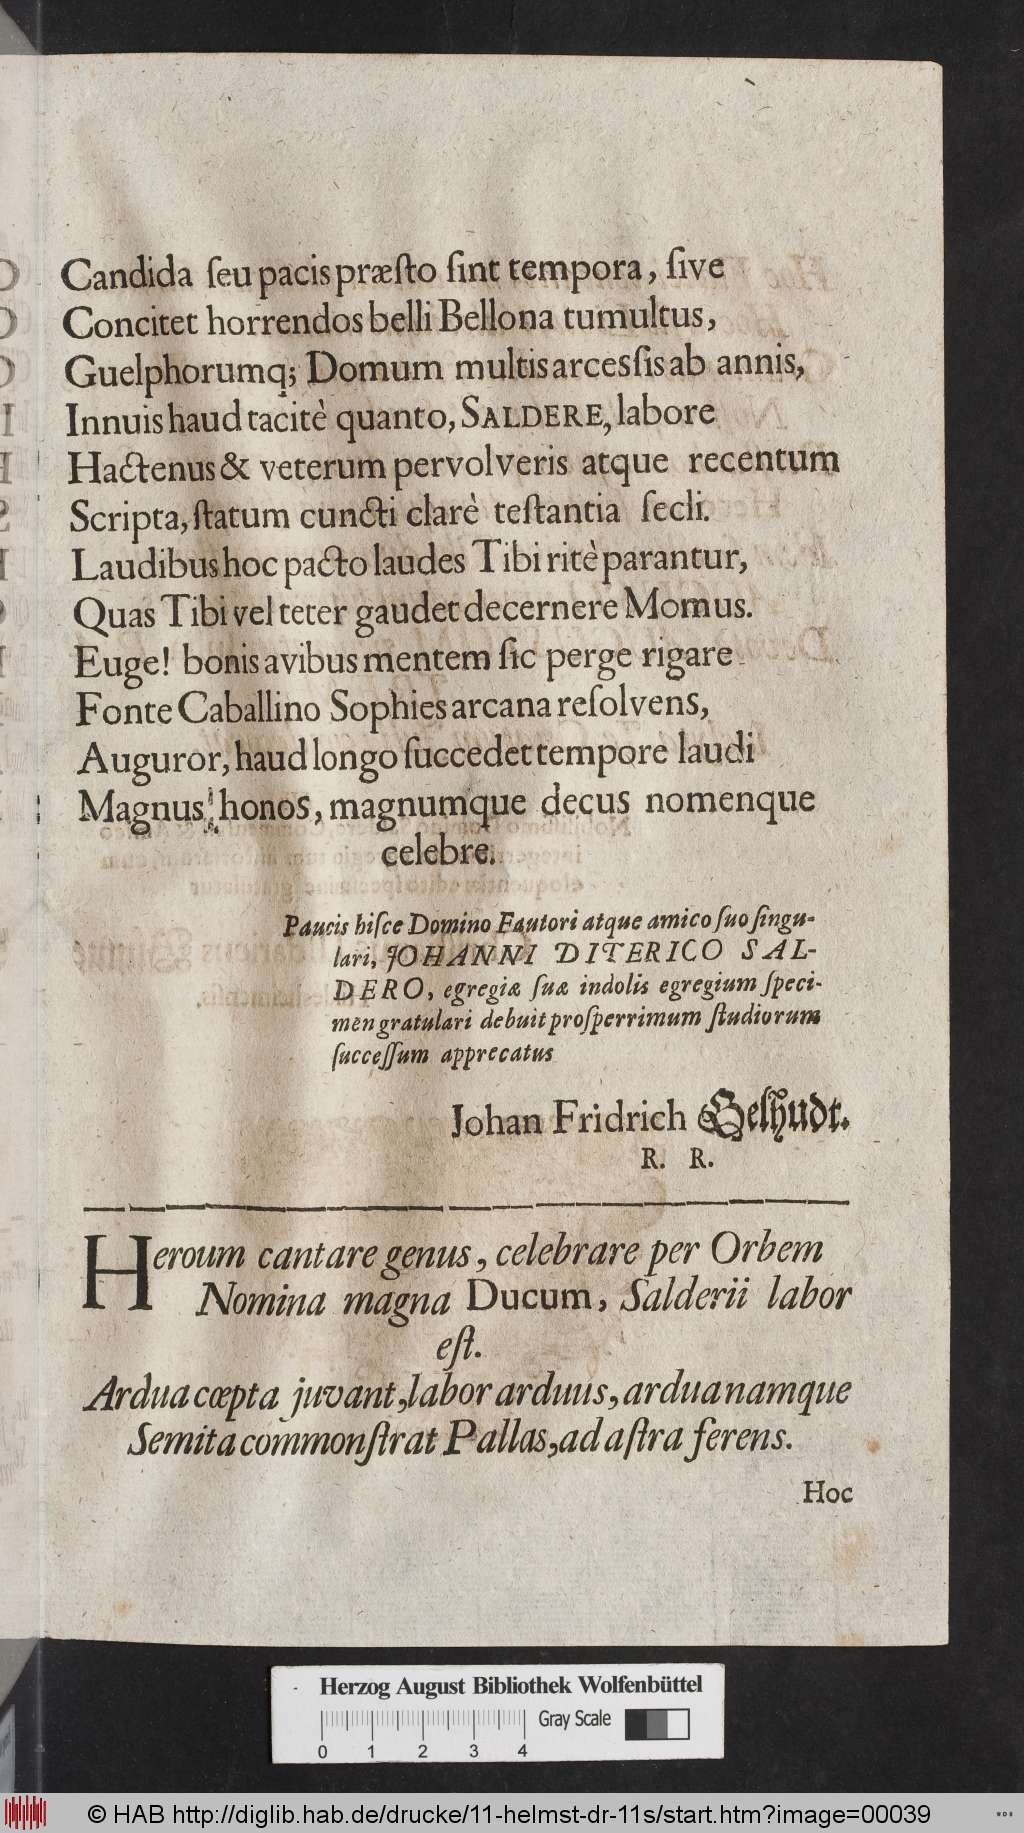 Candida ſeu pacis præſto ſint tempora, ſive
Concitet horrendos belli Bellona tumultus,
Guelphorumq; Domum multis arcesſis ab annis,
Innuis haud tacitè quanto, SALDERE, labore
Hactenus & veterum pervolveris atque recentum
Scripta, ſtatum cuncti clarè teſtantia ſecli.
Laudibus hoc pacto laudes Tibi ritè parantur,
Quas Tibi vel teter gaudet decernere Momus.
Euge! bonis avibus mentem ſic perge rigare
Fonte Caballino Sophies arcana reſolvens,
Auguror, haud longo ſuccedet tempore laudi
Magnus honos, magnumque decus nomenque
celebre.
Paucis hiſce Domino Fautori atque amico ſuo ſingu-
lari, JOHANNI DITERICO SAL-
DERO, egregiæ ſuæ indolis egregium ſpeci-
men gratulari debuit proſperrimum ſtudiorum
ſucceſſum apprecatus
Johan Fridrich Gelhudt.
R. R.
Heroum cantare genus, celebrare per Orbem
Nomina magna Ducum, Salderii labor
eſt.
Ardua cœpta juvant, labor arduus, ardua namque
Semita commonſtrat Pallas, ad aſtra ferens.
Hoc
Herzog August Bibliothek Wolfenbüttel
Gray Scale
0 1 2 3 4
© HAB http://diglib.hab.de/drucke/11-helmst-dr-11s/start.htm?image=00039